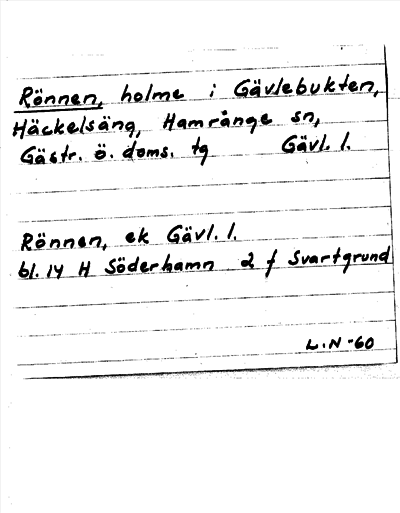 Rönnen, holme i Gävlebukten,
Häckelsäng, Hamrånge sn,
Gästr. ö. doms. tg Gävl. l.
Rönnen, ek Gävl. l.
bl. 14 H Söderhamn 2 f Svartgrund
L.N -60